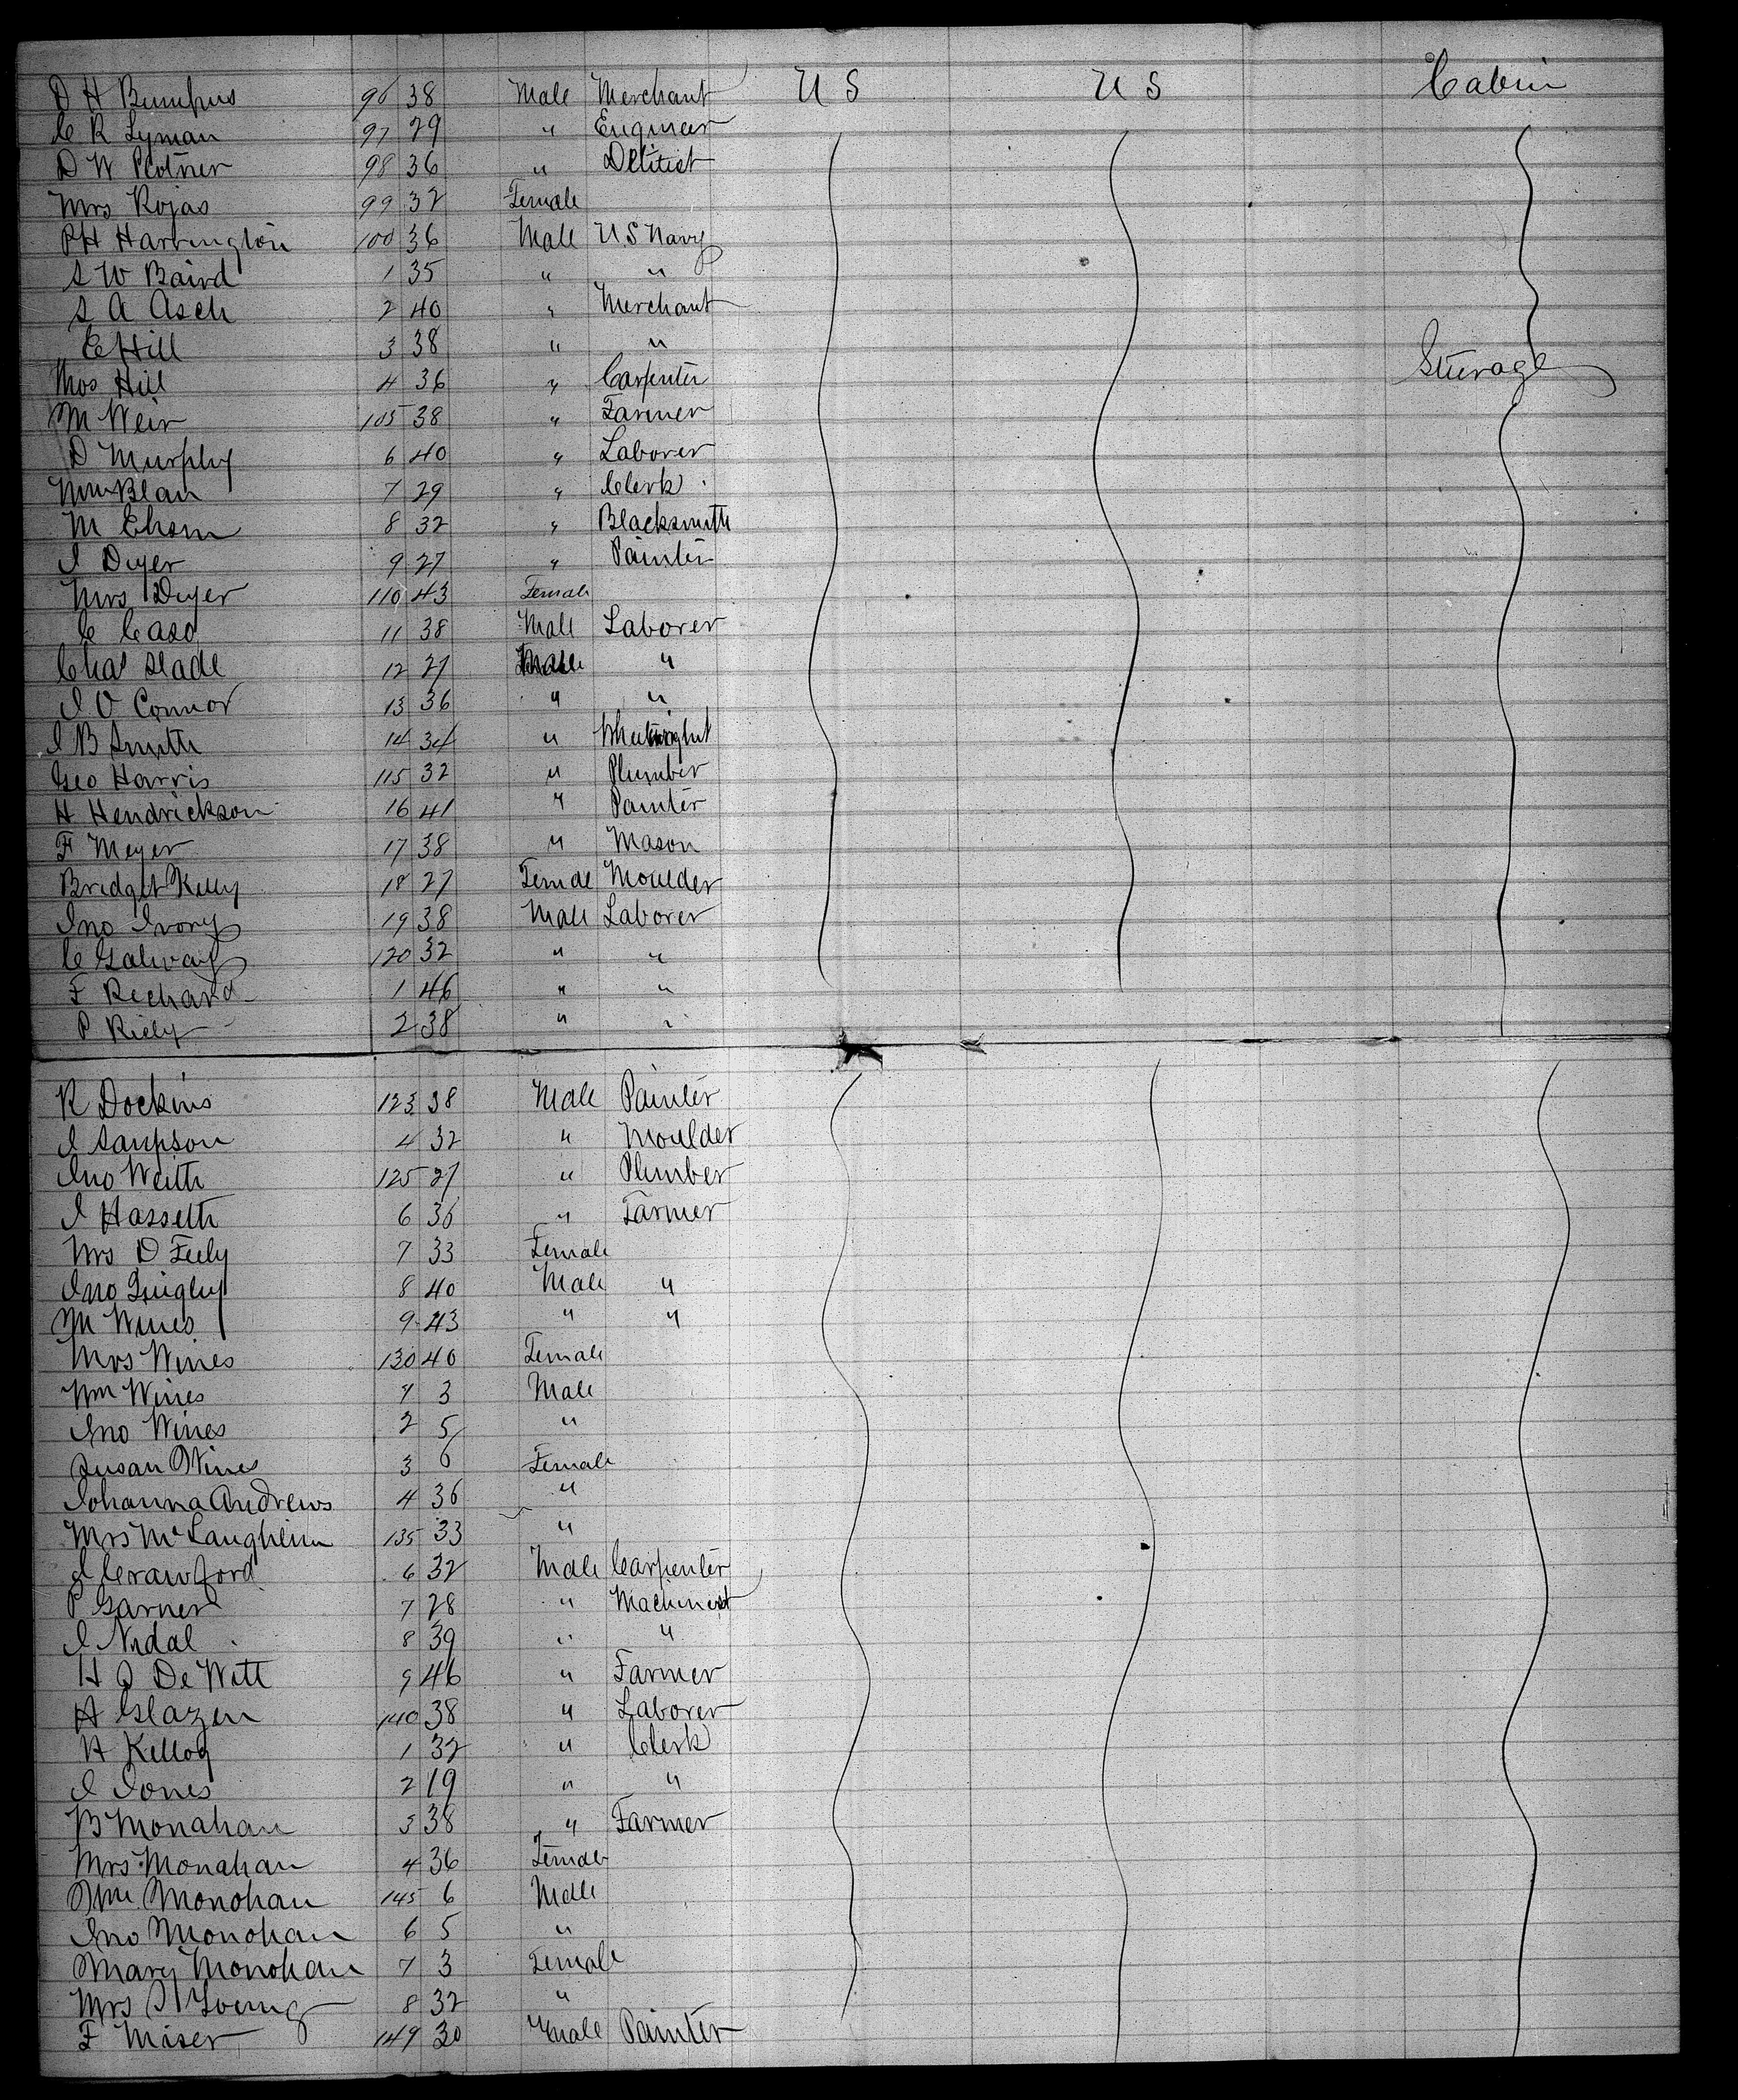 D H Bumpus 96 38 Male Merchant U S U S Cabin
C R Lyman 97 29 " Engineer
D W Plotner 98 36 " Detitist
Mrs Rojas 99 32 Female
P H Harrington 100 36 Male U.S Navy
S W Baird 1 35 " "
S A Asch 2 40 " Merchant
E Hill 3 38 " "
Thos Hill 4 36 " Carpenter Steerage
M Weir 105 38 " Farmer
D Murphy 6 40 " Laborer
Wm Blan 7 29 " Clerk
M Ehom 8 32 " Blacksmith
J Dyer 9 27 " Painter
Mrs Dyer 110 43 Female
C Caso 11 38 Male Laborer
Chas Slade 12 27 Male "
J O Connor 13 36 " "
J B Smith 14 34 " Wheelwright
Geo Harris 115 32 " Plumber
H Hendrickson 16 41 " Painter
F Meyer 17 38 " Mason
Bridget Kelly 18 27 Female Moulder
Jno Ivory 19 38 Male Laborer
C Galway 120 32 " "
F Rechard 1 46 " "
P Riely 2 38 " "
R Dockins 123 38 Male Painter
J Sampson 4 32 " Moulder
Jno Weith 125 27 " Plumber
J Hasseth 6 36 " Farmer
Mrs D Feely 7 33 Female
Jno Quigley 8 40 Male "
M Wines 9 43 " "
Mrs Wines 130 40 Female
Wm Wines 1 3 Male
Jno Wines 2 5 "
Susan Wines 3 6 Female
Johanna Andrews 4 36 "
Mrs McLaughlinn 135 33 "
J Crawford 6 32 Male Carpenter
P Garner 7 28 " Machinist
J Nidal 8 39 " "
H J De Witt 9 46 " Farmer
A Glazen 140 38 " Laborer
H Kellog 1 32 " Clerk
J Jones 2 19 " "
B Monahan 3 38 " Farmer
Mrs Monahan 4 36 Female
Wm Monohan 145 6 Male
Jno Monohan 6 5 "
Mary Monohan 7 3 Female
Mrs Young 8 32 "
F Miser 149 30 Male Painter